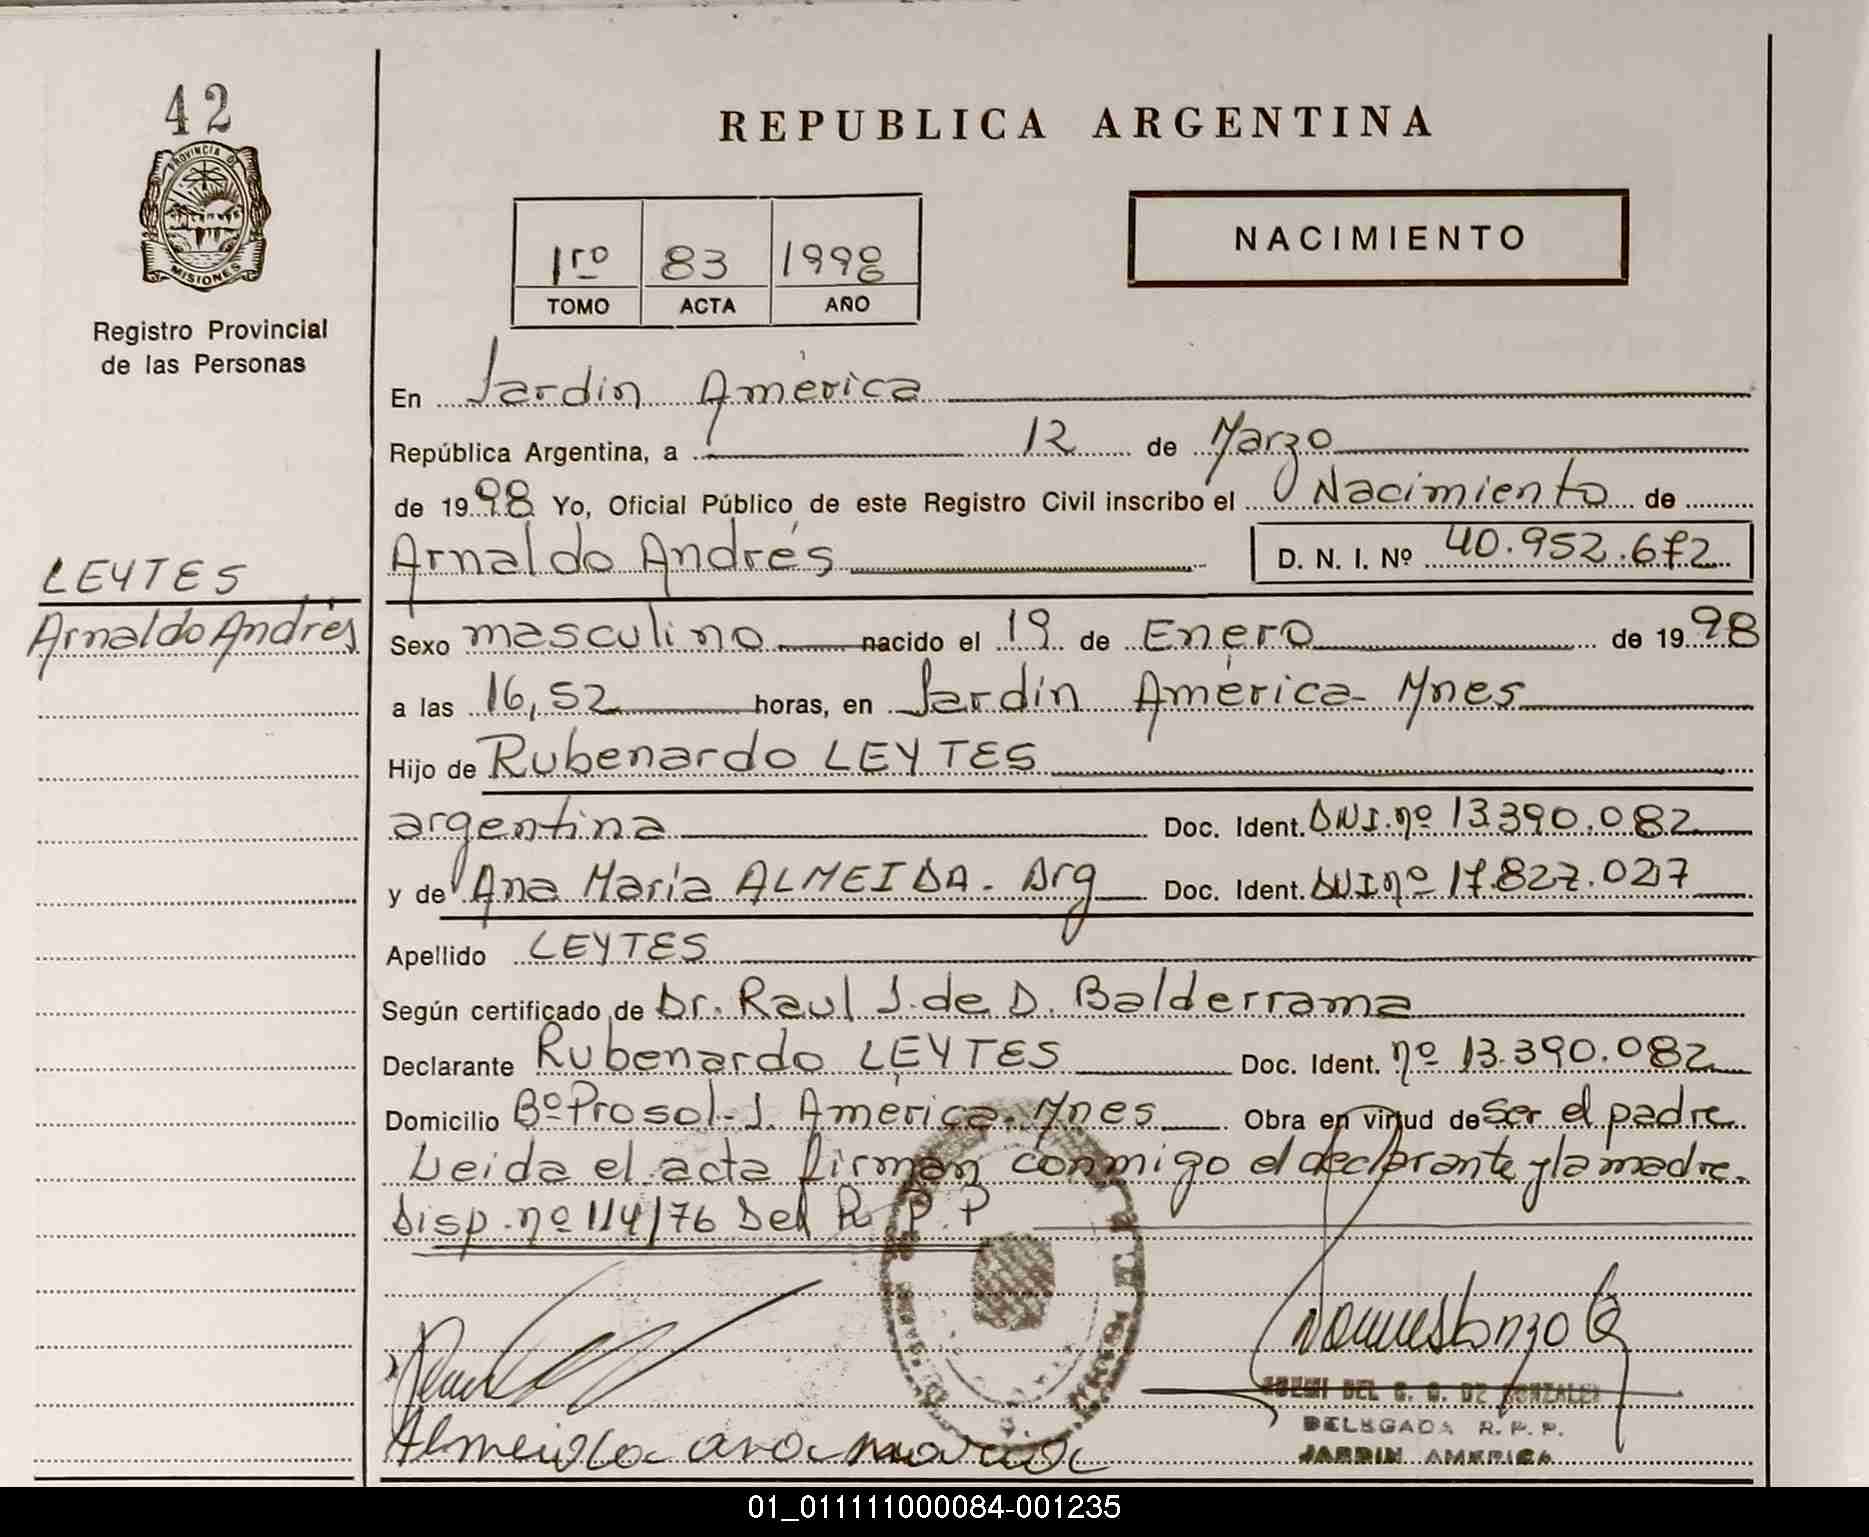 42
PROVINCIA DE
MISIONES
Registro Provincial
de las Personas
LEYTES
Arnaldo Andrés
REPUBLICA ARGENTINA
1ro 83 1998
TOMO ACTA AÑO
NACIMIENTO
En Jardin América
República Argentina, a 12 de Marzo
de 1998 Yo, Oficial Público de este Registro Civil inscribo el Nacimiento de
Arnaldo Andrés D. N. I. Nº 40.952.672
Sexo masculino nacido el 19 de Enero de 1998
a las 16,52 horas, en Jardín América - Mnes
Hijo de Rubenardo LEYTES
argentina Doc. Ident. DNI. nº 13.390.082
y de Ana María ALMEIDA. Arg Doc. Ident. DNI nº 17.827.027
Apellido LEYTES
Según certificado de Dr. Raul J. de D. Balderrama
Declarante Rubenardo LEYTES Doc. Ident. nº 13.390.082
Domicilio Bº Prosol - J. América. Mnes Obra en virtud de ser el padre
Leida el acta firman conmigo el declarante y la madre.
Disp. nº 114/76 Del R. P. P
Almeida ana maria
NOEMI DEL C. G. DE GONZALEZ
DELEGADA R. P. P.
JARDIN AMERICA
01_011111000084-001235